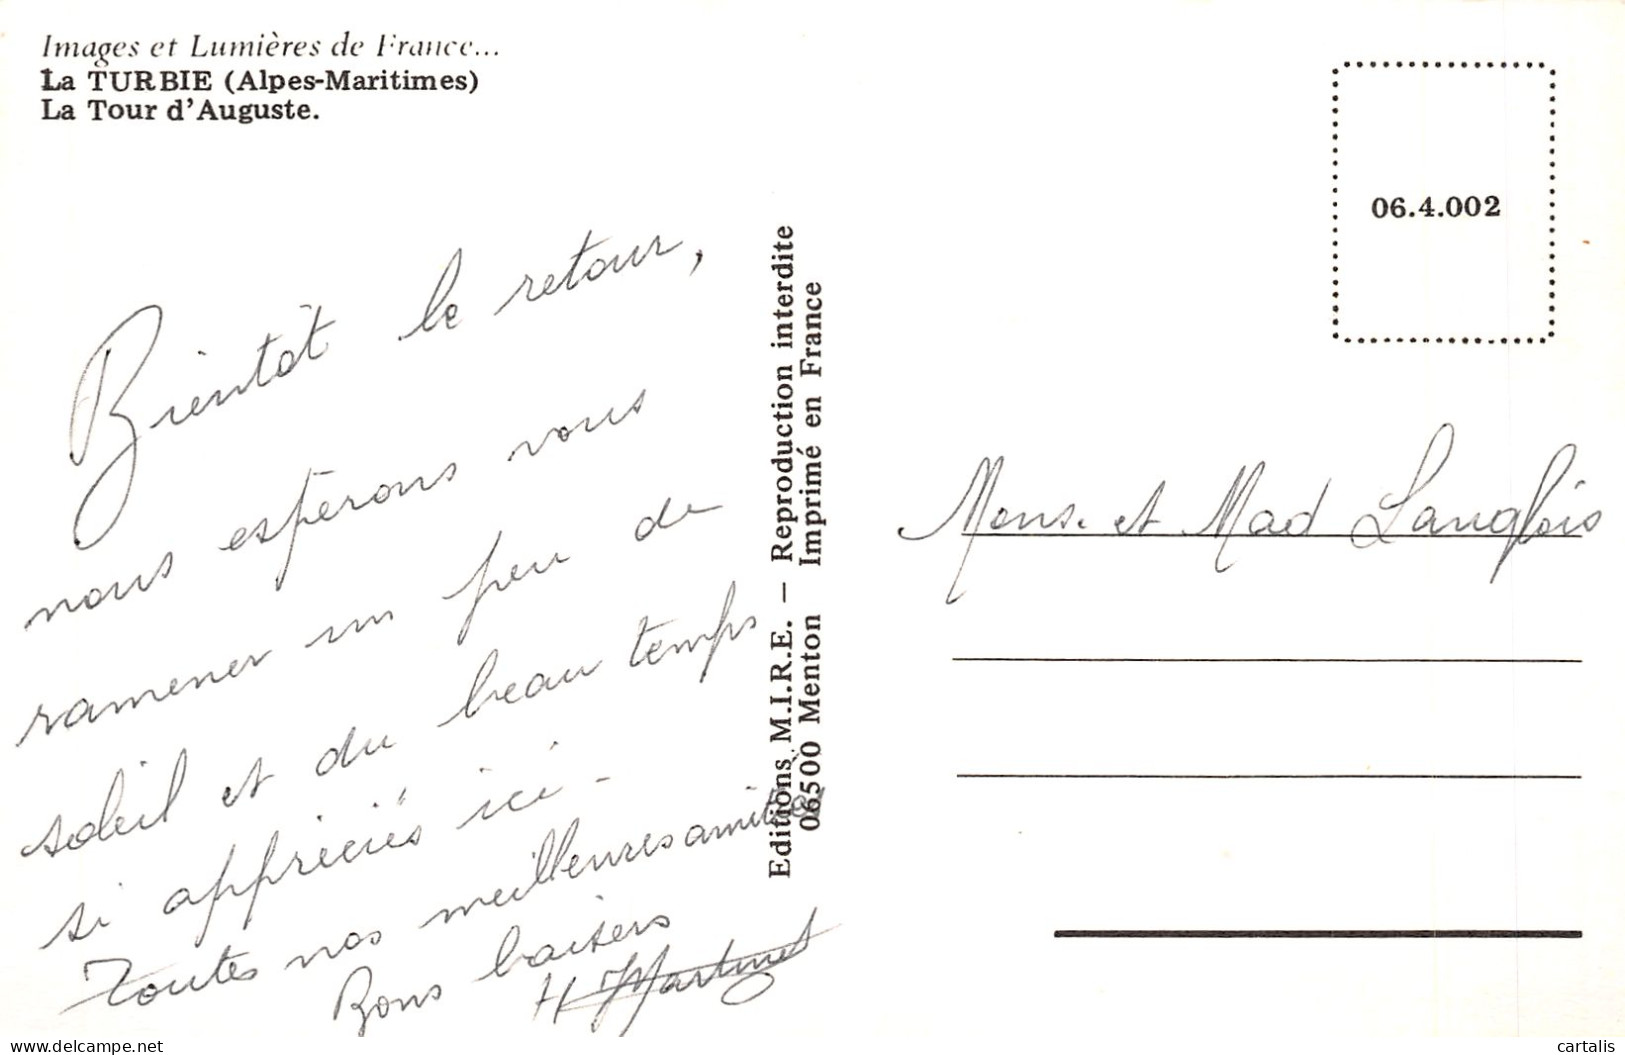 Images et Lumières de France...
La TURBIE (Alpes-Maritimes)
La Tour d'Auguste.
Bientôt le retour,
nous espérons vous
ramener un peu de
soleil et du beau temps
si appréciés ici -
Toutes nos meilleures amitiés
Bons baisers
H Martinet
Editions M.I.R.E. — Reproduction interdite
06500 Menton Imprimé en France
06.4.002
Mons. et Mad Langlois
www.delcampe.net
cartalis